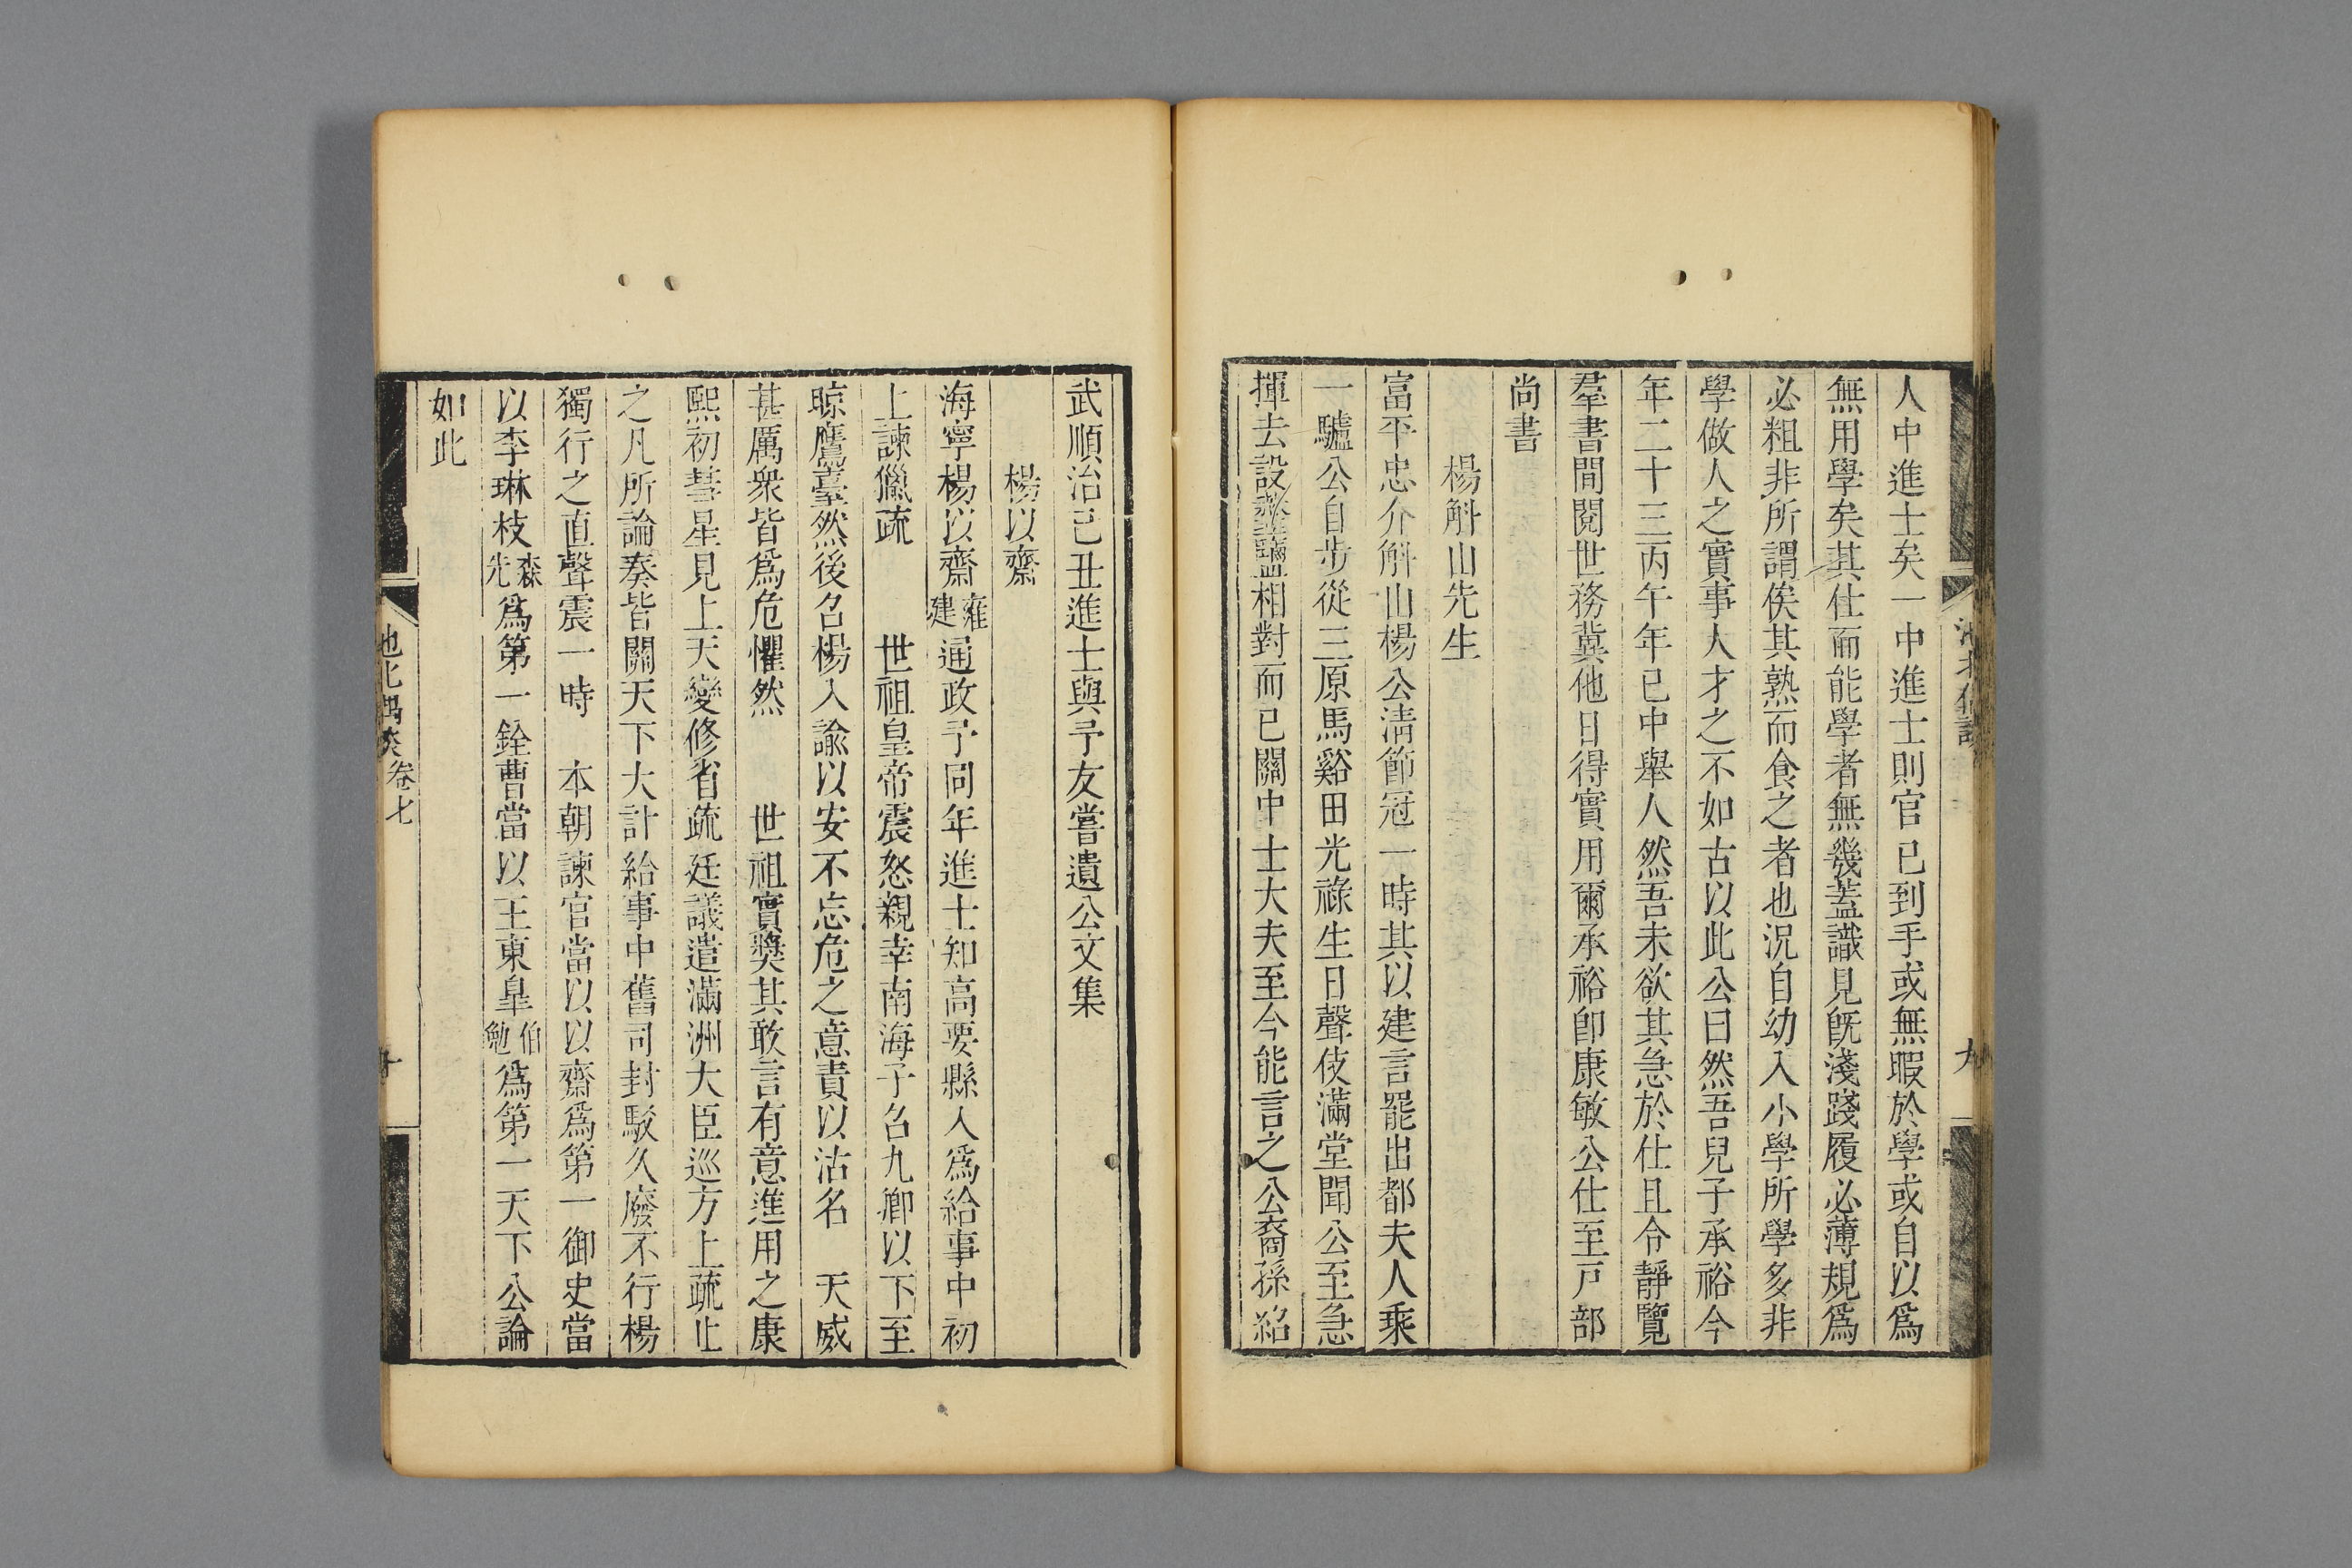 人中進士矣一中進士則官已到手或無暇於學或自以爲
無用學矣其仕而能學者無幾蓋識見旣淺踐履必薄規爲
必粗非所謂俟其熟而食之者也況自幼入小學所學多非
學做人之實事人才之不如古以此公曰然吾兒子承裕今
年二十三丙午年已中舉人然吾未欲其急於仕且令靜覽
羣書間閱世務冀他日得實用爾承裕卽康敏公仕至戸部
尚書
楊斛山先生
富平忠介斛山楊公淸節冠一時其以建言罷出都夫人乘
一驢公自步從三原馬谿田光祿生日聲伎滿堂聞公至急
揮去設虀鹽相對而已關中士大夫至今能言之公裔孫紹
武順治己丑進士與予友嘗遺公文集
楊以齋
海寧楊以齋雍建通政予同年進士知高要縣入爲給事中初
上諫獵疏　世祖皇帝震怒親幸南海子召九卿以下至
晾鷹臺然後召楊入諭以安不忘危之意責以沽名　天威
甚厲衆皆爲危懼然　世祖實奬其敢言有意進用之康
熙初彗星見上天變修省疏廷議遣滿洲大臣巡方上疏止
之凡所論奏皆關天下大計給事中舊司封駁久廢不行楊
獨行之直聲震一時　本朝諫官當以以齋爲第一御史當
以李琳枝森先爲第一銓曹當以王東皐伯勉爲第一天下公論
如此
池北偶談卷七